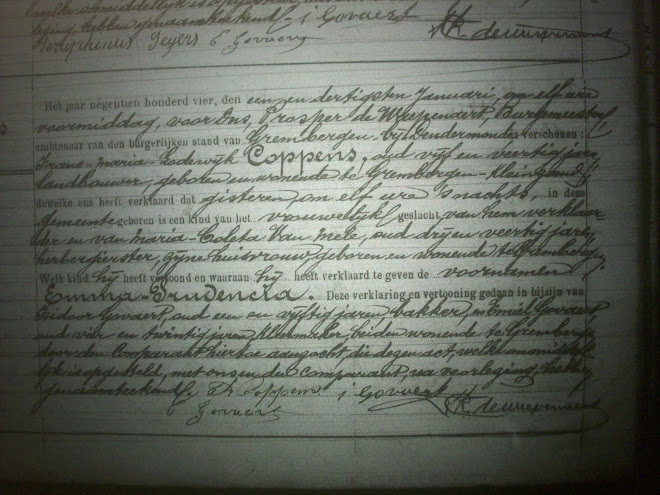 Josephinus Seyers E Govaert
Het jaar negentien honderd vier, den een en dertigsten Januari, om elf ure
voormiddag, voor Ons, Prosper de Weependert, Burgemeester
ambtenaar van den burgerlijken stand van Grembergen bij Dendermonde verschenen:
Frans-Maria-Lodewijk Coppens, oud vijf en veertig jaar,
landbouwer, geboren en wonende te Grembergen-Kleinzand
dewelke ons heeft verklaard dat gisteren, om elf ure 's nachts, in deze
Gemeente geboren is een kind van het vrouwelijk geslacht, van hem verklaar-
der en van Maria-Coleta Van Mele, oud drij en veertig jaren,
herbergierster, zijne huisvrouw, geboren en wonende te Grembergen
Welk kind hij heeft vertoond en waaraan hij heeft verklaard te geven de voornamen
Emma-Prudencia. Deze verklaring en vertooning gedaan in bijzijn van
Isidoor Govaert, oud een en vijftig jaren, bakker, en Emiel Govaert
oud vier en twintig jaren, kleermaker, beiden wonende te Grembergen
door den Comparant hiertoe aanzocht, de dezen act, welke onmiddel-
lijk is opgesteld, met ons en den Comparant, na voorlezing, hebben
genaamteekend. Fr Coppens i Govaert
Govaert